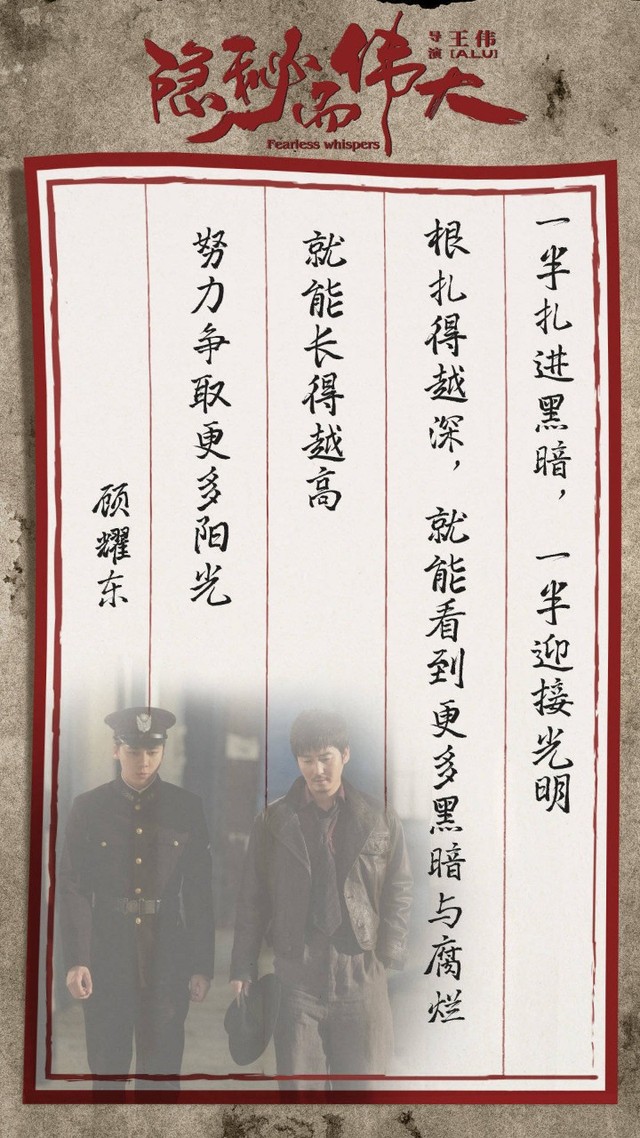 隐秘而伟大
导演 王伟
[ALU]
Fearless whispers
一半扎进黑暗，一半迎接光明
根扎得越深，就能看到更多黑暗与腐烂
就能长得越高
努力争取更多阳光
顾耀东